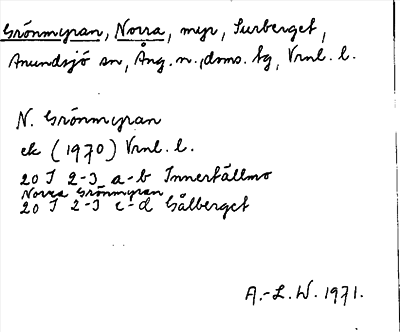 Grönmyran, Norra, myr, Surberget,
Anundsjö sn, Ång. n., doms. tg, Vrnl. l.
N. Grönmyran
ek (1970) Vrnl. l.
20 I 2-3 a-b Innertällmo
Norra Grönmyran
20 I 2-3 c-d Gålberget
A.-L. W. 1971.